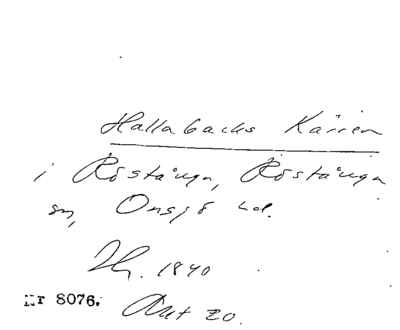 Hallabacks Kärren
i Röstånga, Röstånga
sn, Onsjö hd.
1840
Nr 8076. Akt 20.